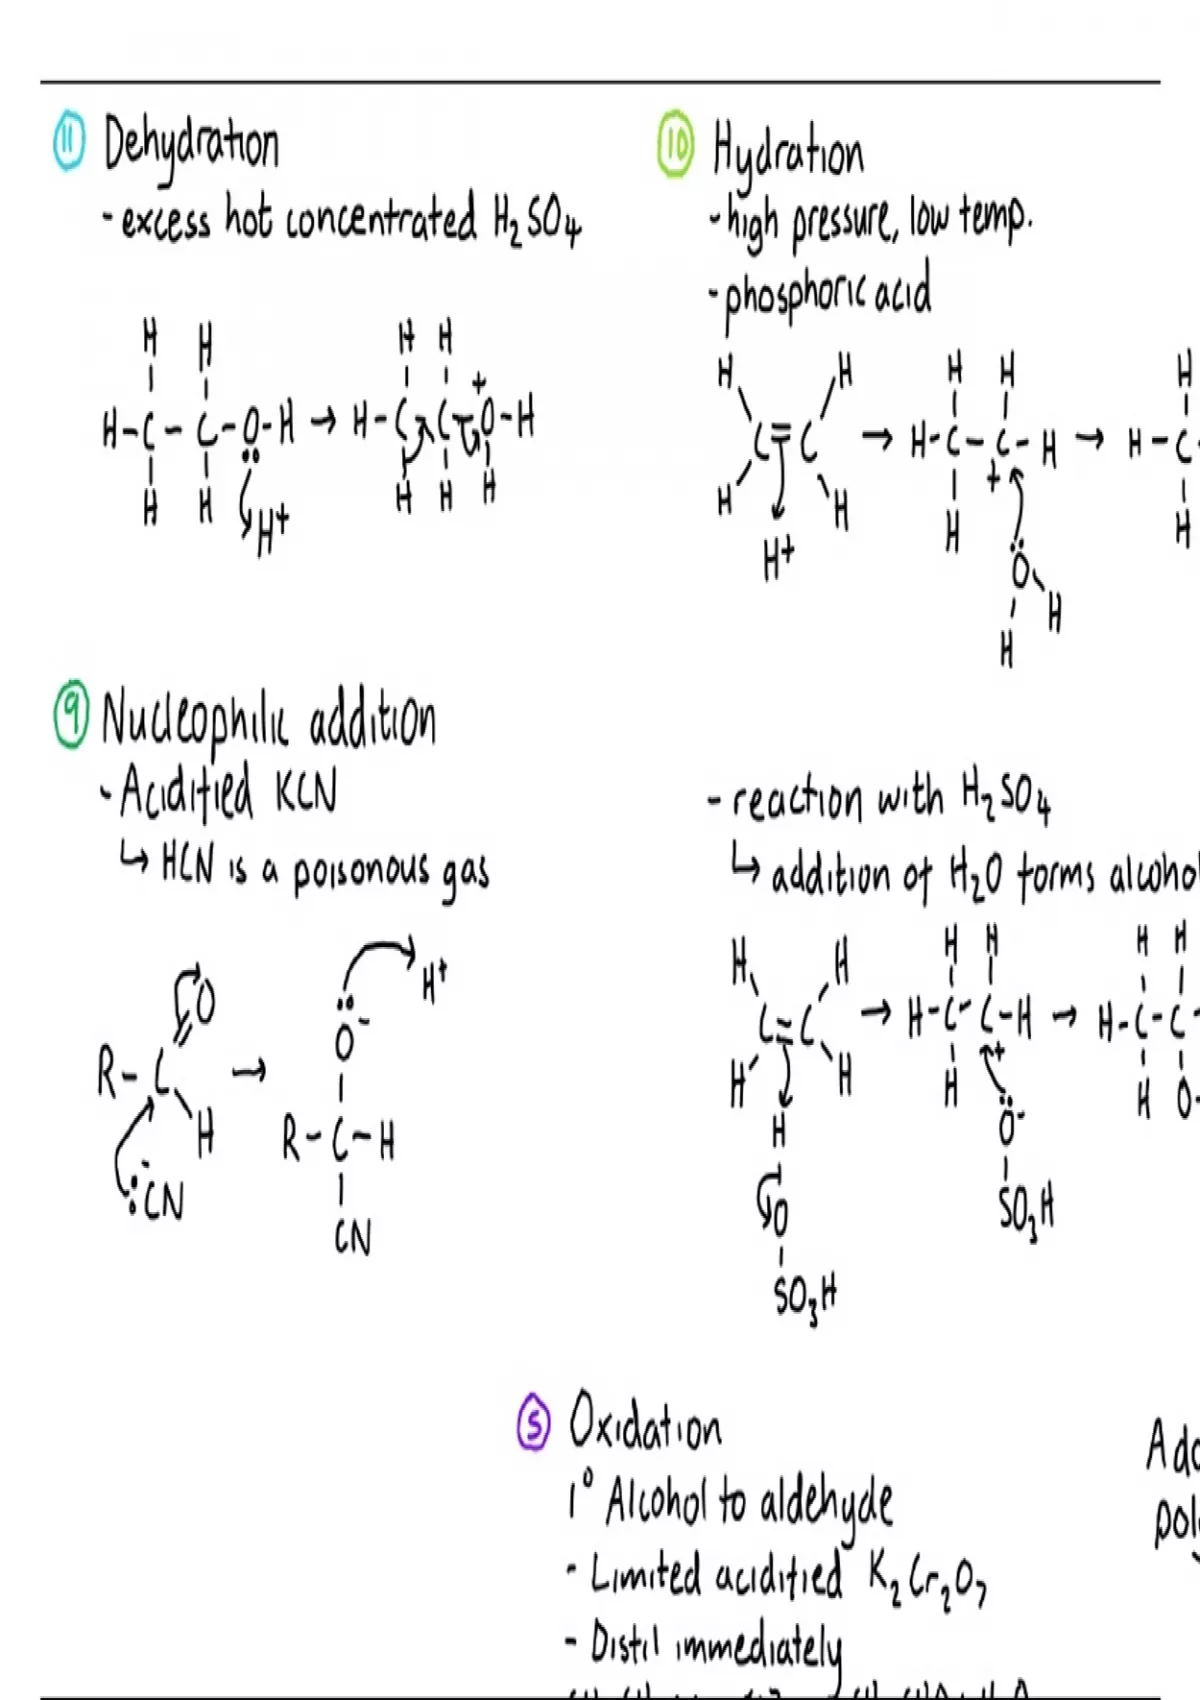 11 Dehydration
- excess hot concentrated H₂SO₄
H H H H
H-C-C-O-H → H-C C O-H
+
H H H+ H H H
10 Hydration
- high pressure, low temp.
- phosphoric acid
H H H H H
C=C → H-C-C-H → H-C
H H H + H
H+ O
H H
9 Nucleophilic addition
- Acidified KCN
↳ HCN is a poisonous gas
O H+
O-
R-C → R-C-H
H
:-CN CN
- reaction with H₂SO₄
↳ addition of H₂O forms alcohol
H H H H H H
C=C → H-C-C-H → H-C-C-
H H H + H O-
H O-
O SO₃H
SO₃H
5 Oxidation
1° Alcohol to aldehyde
- Limited acidified K₂Cr₂O₇
- Distil immediately